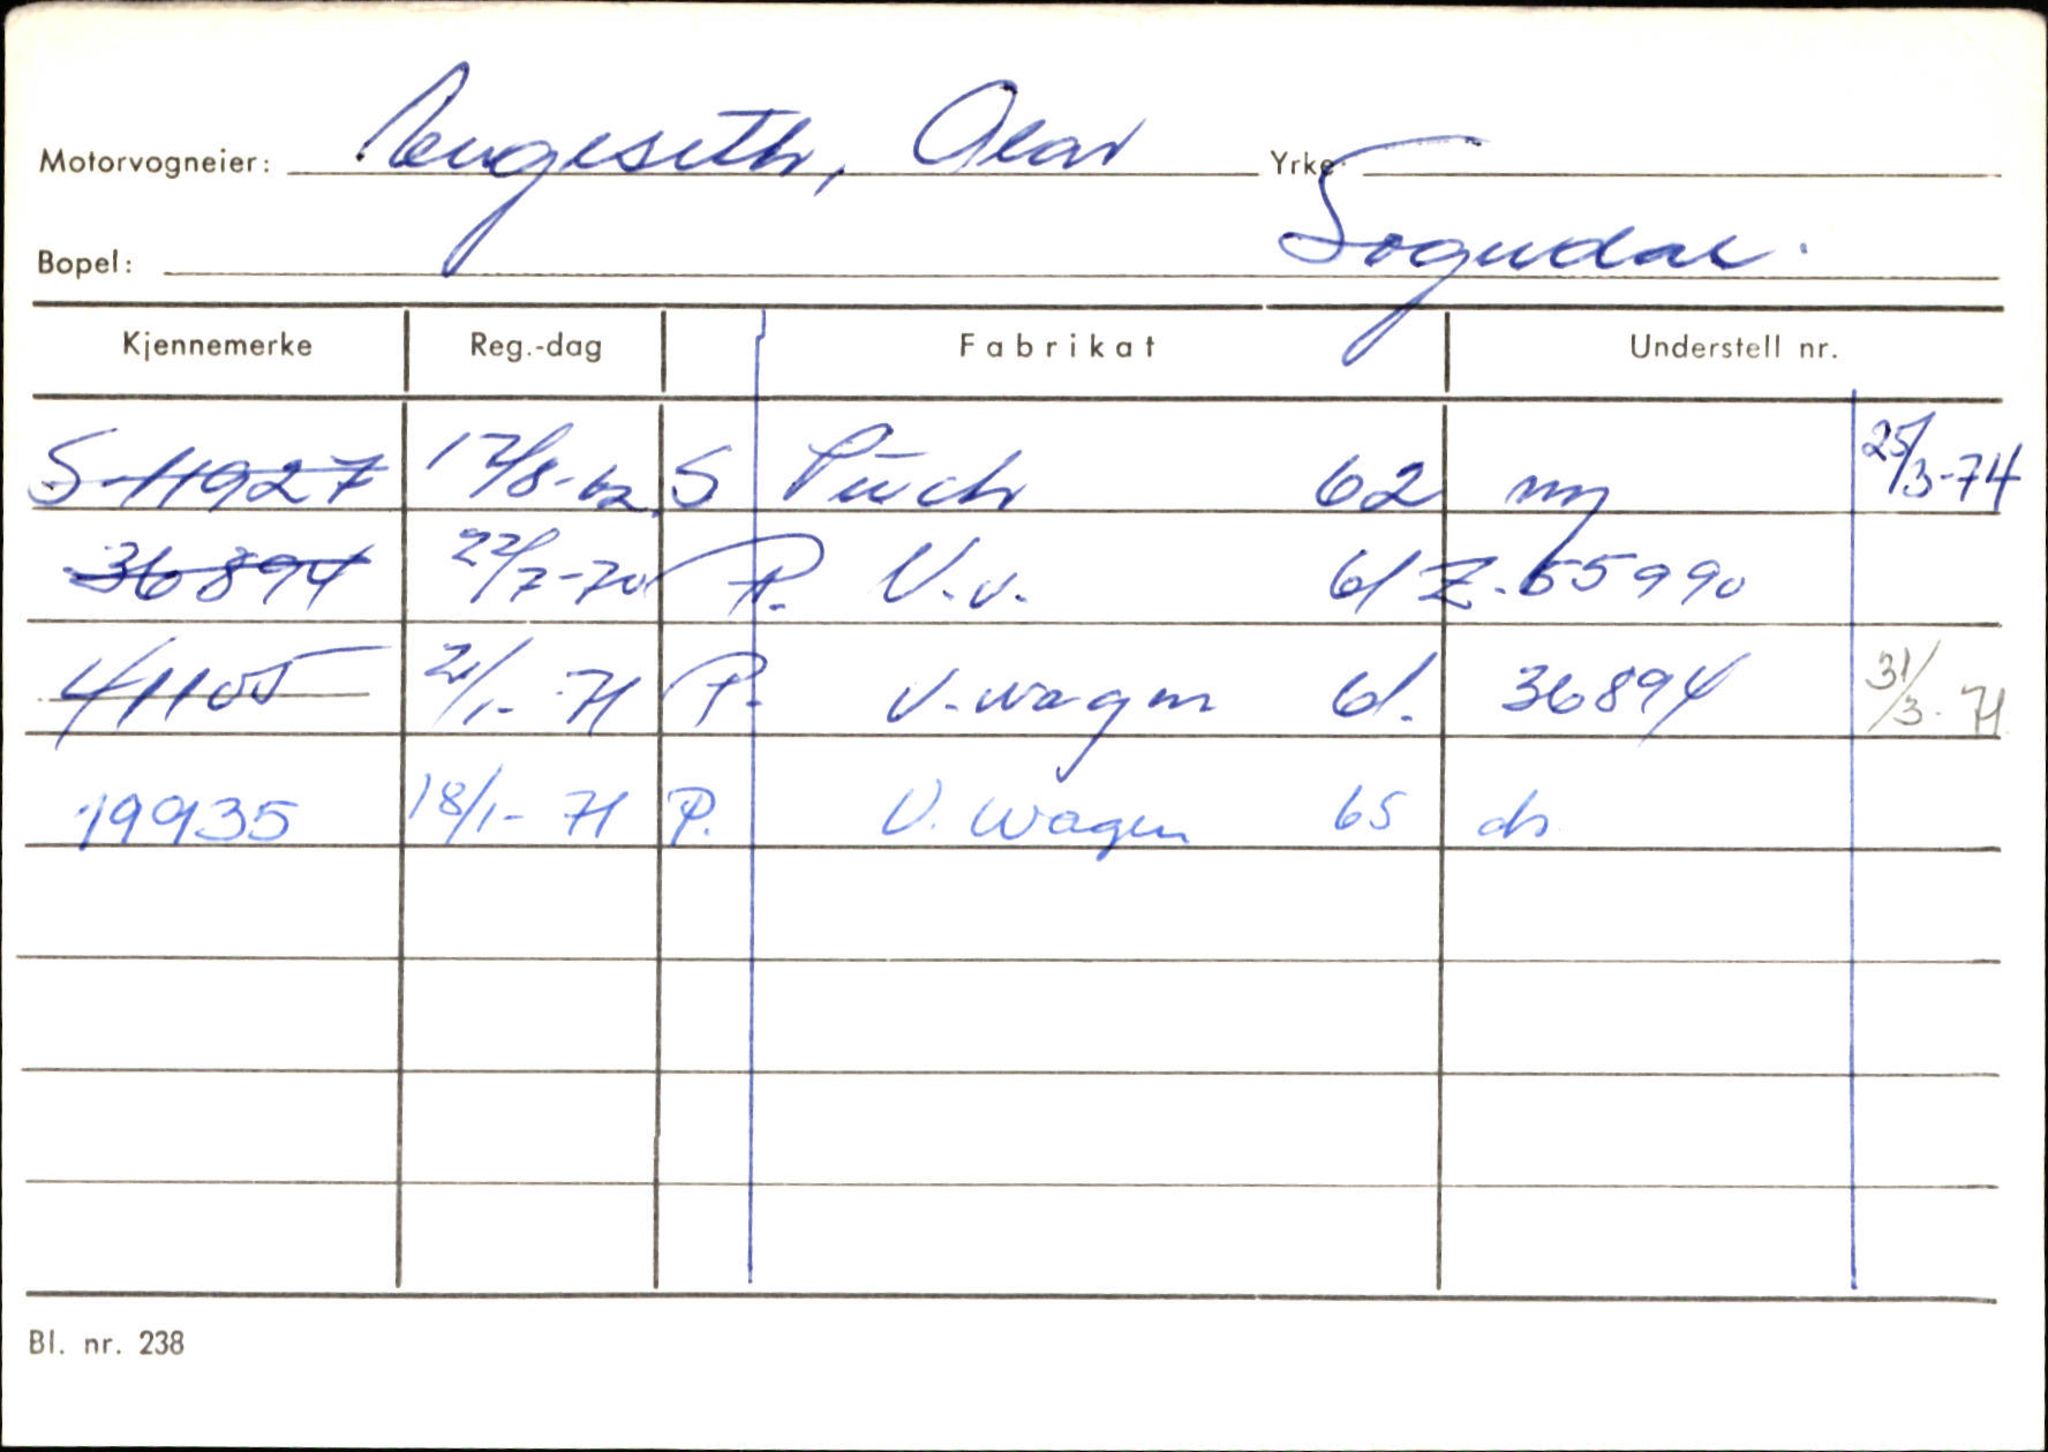 Motorvogneier: Rengeseth, Olav Yrke
Bopel: Sogndal.
Kjennemerke Reg.-dag Fabrikat Understell nr.
S-11927 17/8-62 S Puch 62 ny 25/3-74
36894 22/7-70 P. V.v. 61 Z-55990
41105 21/1-71 P. V-wagen 61. 36894 31/3-71
19935 18/1-71 P. V. Wagen 65 ds
Bl. nr. 238